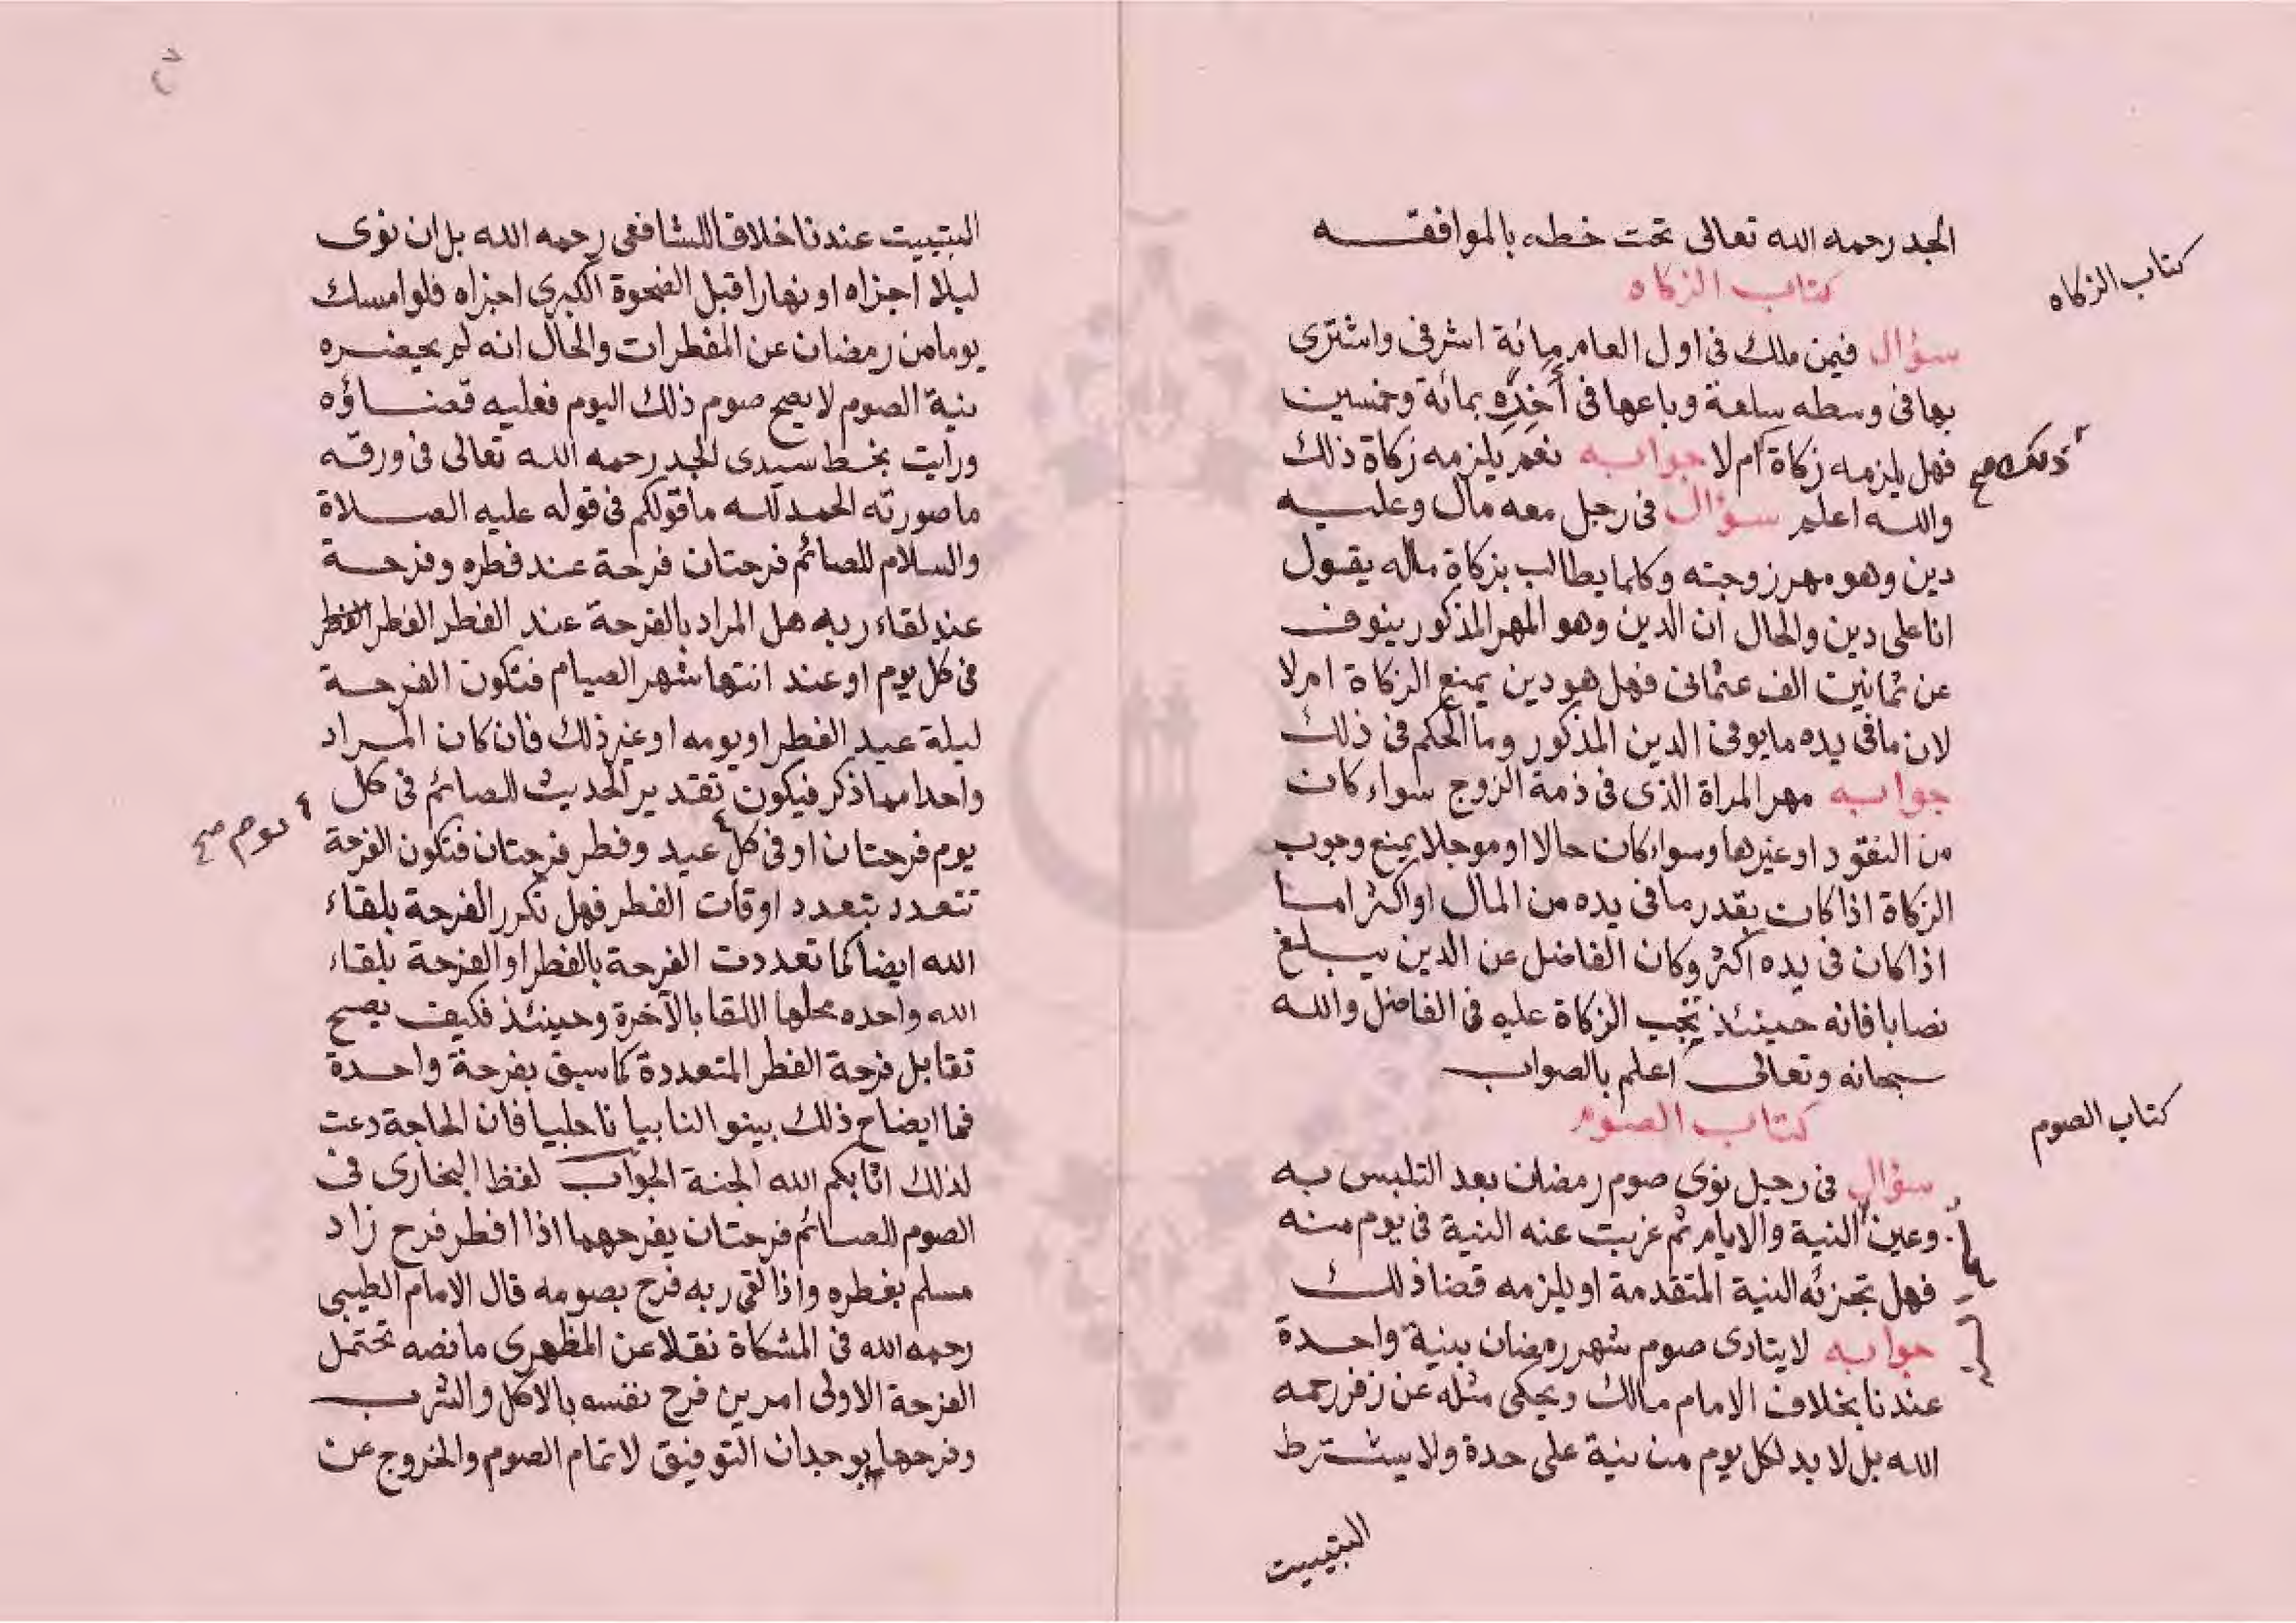 الجد رحمه الله تعالى تحت خطه بالموافقه
كتاب الزكاه
كتاب الزكاه
سؤال فيمن ملك فى اول العام مائة اشرفى واشترى
بها فى وسطه سلعة وباعها فى أخره بمائة وخمسين
فهل يلزمه زكاة أم لا جوابه نعم يلزمه زكاة ذلك
ذلك صح
والله اعلم سؤال فى رجل معه مال وعليه
دين وهو مهر زوجته وكلما يطالب بزكاة ماله يقول
انا على دين والحال ان الدين وهو المهر المذكور ينوف
عن ثمانين الف عثمانى فهل هو دين يمنع الزكاة ام لا
لان ما فى يده ما يوفى الدين المذكور وما الحكم فى ذلك
جوابه مهر المراة الذى فى ذمة الزوج سواء كان
من النقود او غيرها وسواء كان حالا او موجلا يمنع وجوب
الزكاة اذا كان بقدر ما فى يده من المال او اكثر اما
اذا كان فى يده اكثر وكان الفاضل عن الدين يبلغ
نصابا فانه حينئذ تجب الزكاة عليه فى الفاضل والله
سبحانه وتعالى اعلم بالصواب
كتاب الصوم
كتاب الصوم
سؤال فى رجل نوى صوم رمضان بعد التلبس به
وعين النية والايام ثم غربت عنه النية فى يوم منه
فهل تجزئه النية المتقدمة او يلزمه قضا ذلك
جوابه لا يتادى صوم شهر رمضان بنية واحدة
عندنا بخلاف الامام مالك ويحكى مثله عن زفر رحمه
الله بل لا بد لكل يوم من نية على حدة ولا يشترط
التبييت
التبييت عندنا خلافا للشافعى رحمه الله بل ان نوى
ليلا اجزاه او نهارا قبل الضحوة الكبرى اجزاه فلو امسك
يوما من رمضان عن المفطرات والحال انه لم يحضره
نية الصوم لا يصح صوم ذلك اليوم فعليه قضاؤه
ورايت بخط سيدى الجد رحمه الله تعالى فى ورقه
ما صورته الحمد لله ما قولكم فى قوله عليه الصلاة
والسلام للصائم فرحتان فرحة عند فطره وفرحة
عند لقاء ربه هل المراد بالفرحة عند الفطر الفطر الفطر
فى كل يوم او عند انتها شهر الصيام فتكون الفرحة
ليلة عيد الفطر او يومه او غير ذلك فان كان المراد
واحدا مما ذكر فيكون تقدير الحديث للصائم فى كل
يوم فرحتان او فى كل عيد وفطر فرحتان فتكون الفرحة
يوم صح
تتعدد بتعدد اوقات الفطر فهل تكرر الفرحة بلقاء
الله ايضا كما تعددت الفرحة بالفطر او الفرحة بلقاء
الله واحده محلها اللقا بالآخرة وحينئذ فكيف يصح
تقابل فرحة الفطر المتعددة كما سبق بفرحة واحدة
فما ايضاح ذلك بينوا لنا بيانا جليا فان الحاجة دعت
لذلك اثابكم الله الجنة الجواب لفظ البخارى فى
الصوم للصائم فرحتان يفرحهما اذا افطر فرح زاد
مسلم بفطره واذا لقى ربه فرح بصومه قال الامام الطيبى
رحمه الله فى المشكاة نقلا عن المظهرى ما نصه تحتمل
الفرحة الاولى امرين فرح نفسه بالاكل والشرب
وفرحها بوجدان التوفيق لاتمام الصوم والخروج عن